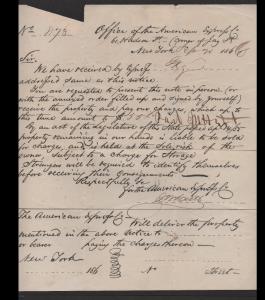 No 1173. Office of the American Express Co
No Hudson St. (Corner of Jay St.)
New York 186
Sir.
We have received by Express
addressed same as this notice.
You are requested to present this note in person (or
with the annexed order filled up and signed by yourself)
receive the property and pay our charges, which up to
this time amount to $
By an act of the Legislature of the State passed 1855
property remaining in our hands is liable to be sold
for charges, and is held at the Sole risk of the
owner, Subject to a charge for Storage
Strangers will be required to identify themselves
before receiving their Consignments
Respectfully &c
for the American Express Co
The American Express Co Will deliver the property
mentioned in the above Notice to
or bearer paying the charges thereon
New York
186 No Street